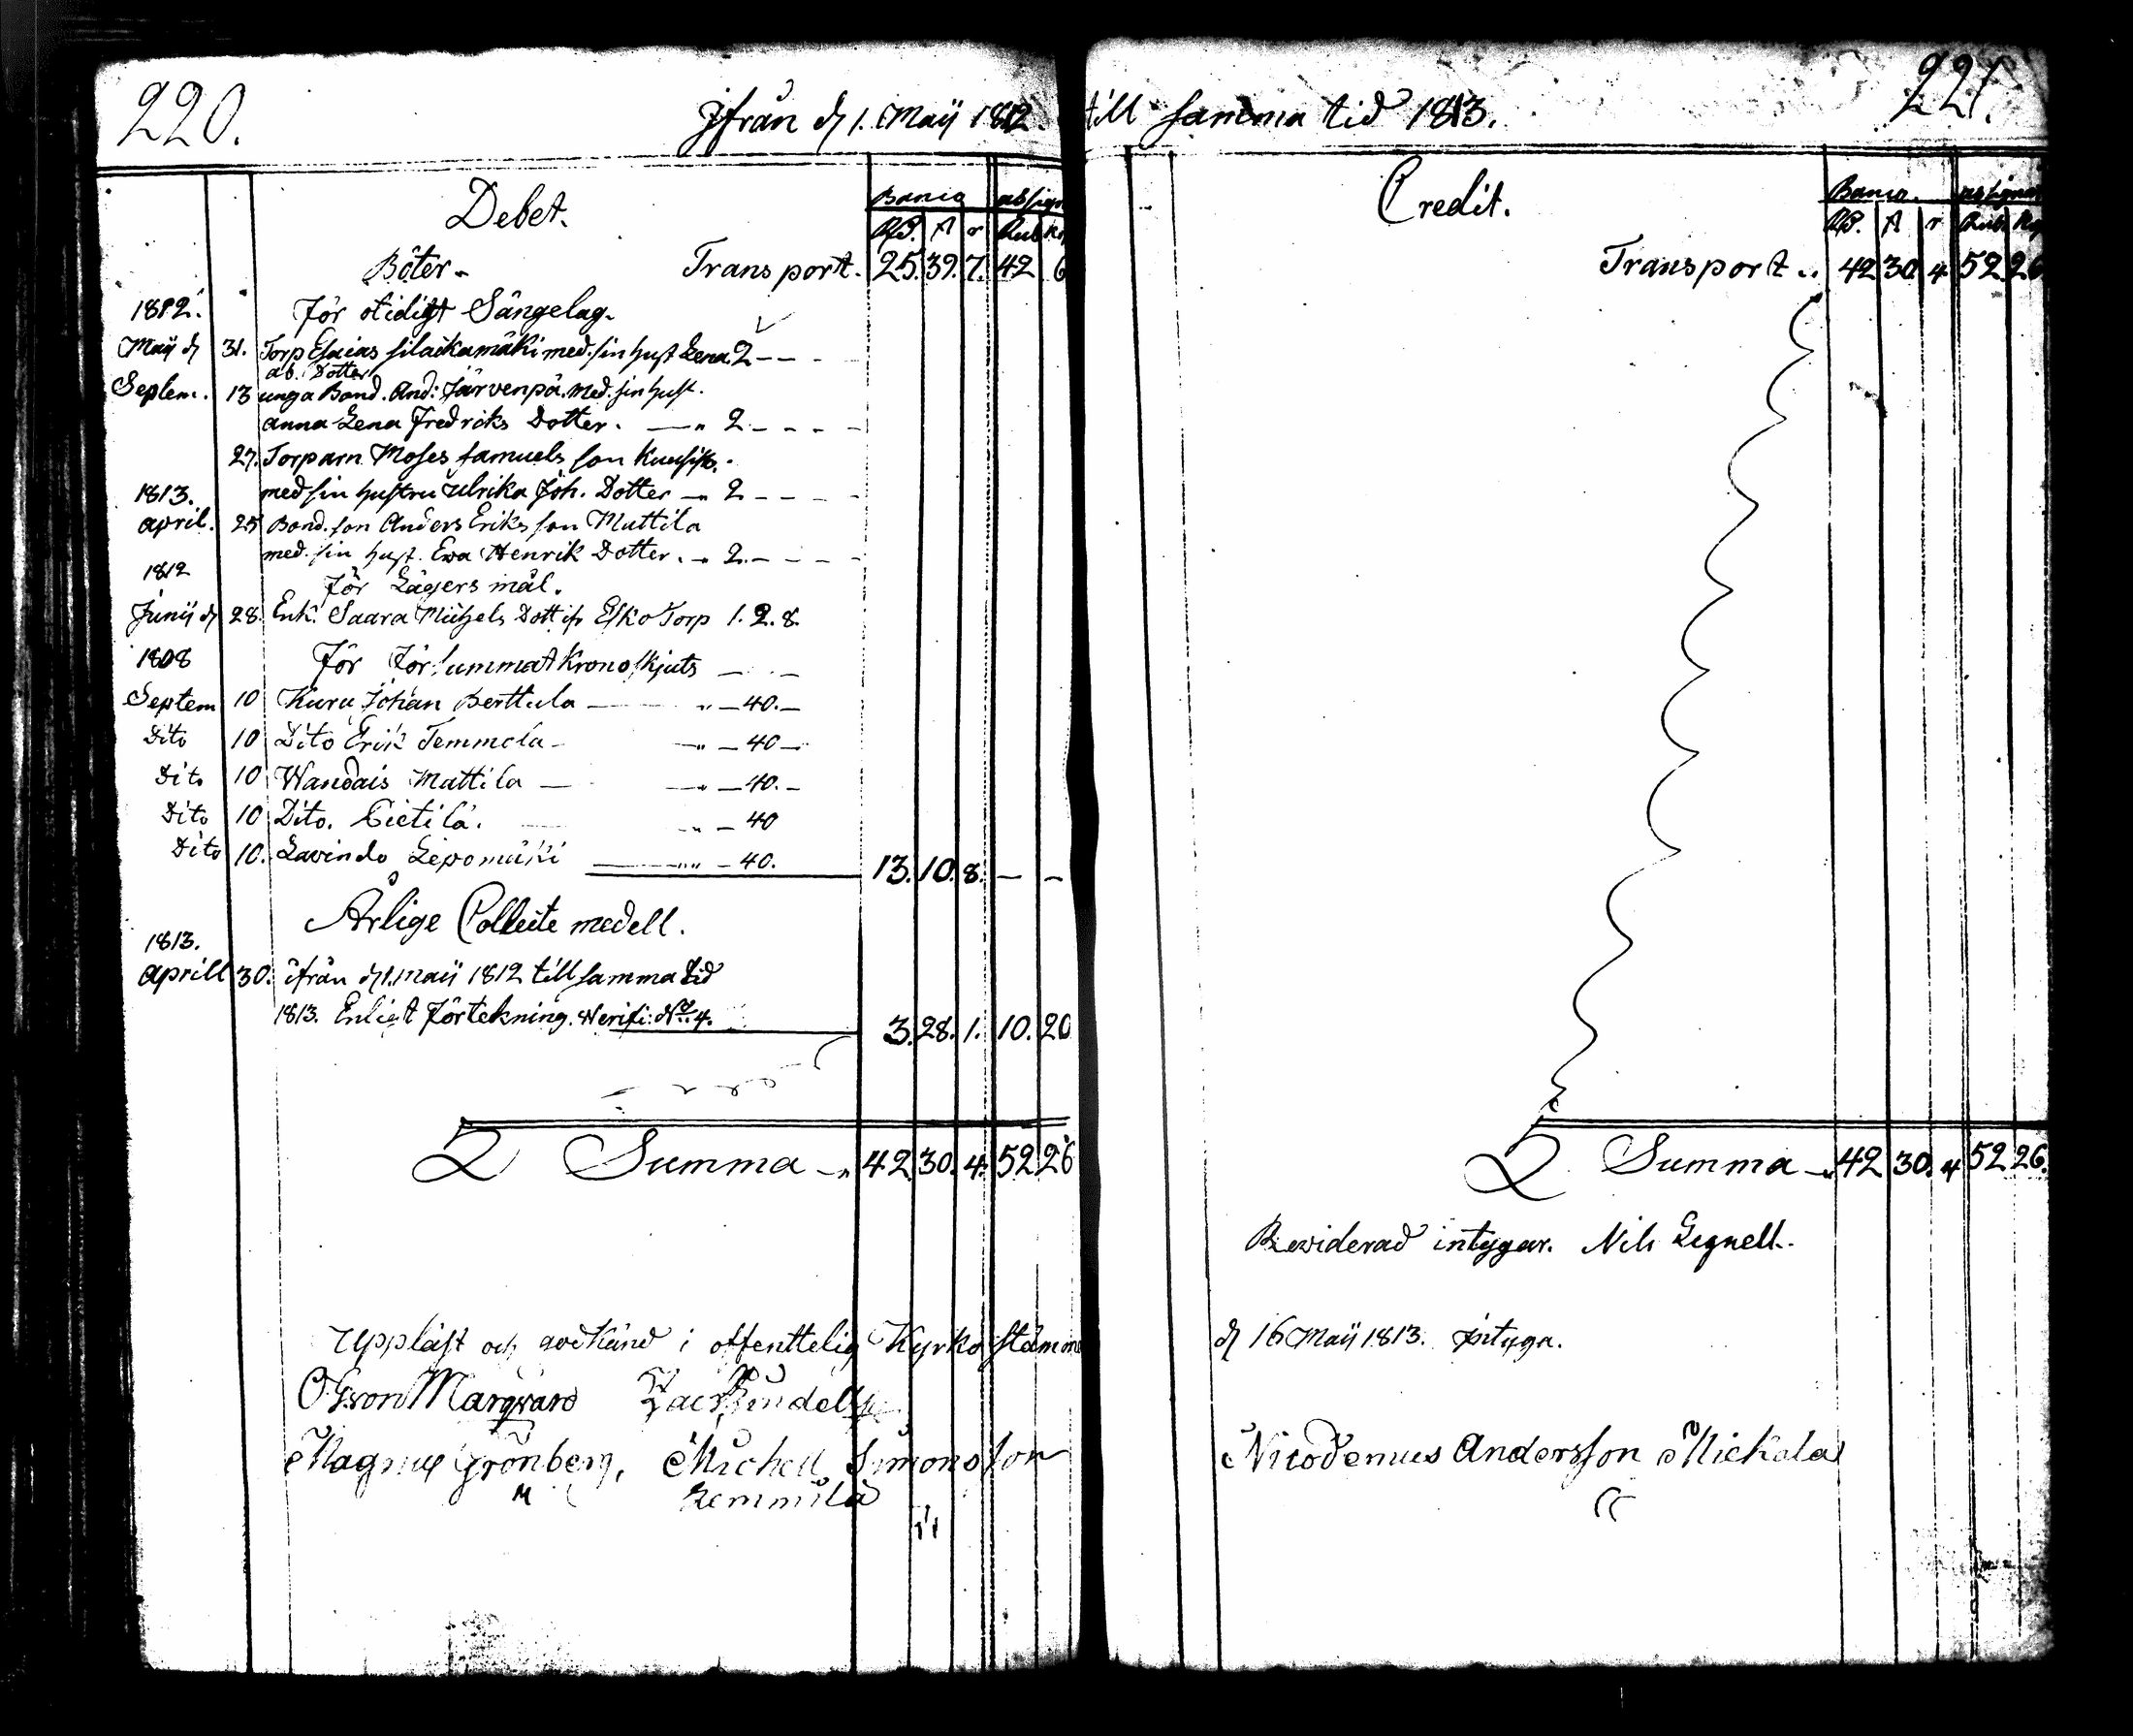 220.
Ifrån d 1. Maij 1812.
Debet.
Banco assign
RD. s r Rub Kop
Böter. Transport. 25. 39. 7. 42 6
1812. För otidigt Sängelag.
Maij d 31. Torp Esaias silackamäki med. sin hust Lena 2 – –
ab. Dotter
Septem. 13 unga Bond. And: Järvenpä. med. sin hust.
anna Lena Fredriks Dotter. — " 2. – – – –
27. Torparn Moses samuels son
1813. med sin hustru Ulrika Joh. Dotter — " 2 – – – –
april. 25 Bond. son Anders Eriks son Mattila
med. sin hust. Ewa Henrik Dotter. " 2. – – – –
1812 För Lägersmål.
Junij d 28. Enk. Saara Michels Dott Esko Torp 1. 2. 8.
1808 För Försummat Kronoskjuts
Septem 10 Kuru Johan Berttula — " – 40. –
Dito 10 Dito Erik Temmola – — " – 40 –
Dito 10 Wandais Mattila — — " – 40. –
Dito 10 Dito. Pietilä. " – 40
Dito 10. Lavindo Lepomäki — " – 40. 13. 10. 8. – –
Årlige Collecte medell.
1813.
aprill 30. ifrån d 1. maij 1812 till samma tid
1813. Enligt Förtekning. Werifi: No. 4. 3. 28. 1. 10. 20
Summa – " 42 30. 4. 52 26
Uppläst och godkänd i offenttelig Kyrko stämma
Marqvard
Magnus Grönberg, Michell Simonsson
M
till samma tid 1813.
221.
Credit.
Banco. assign
RD. s r Rub. Kop
Transport .. 42 30. 4. 52 26
Summa – 42 30. 4 52 26.
Reviderad intygar. Nils Legnell.
d 16 Maij 1813. intyga.
Nicodemus Andersson Mickola